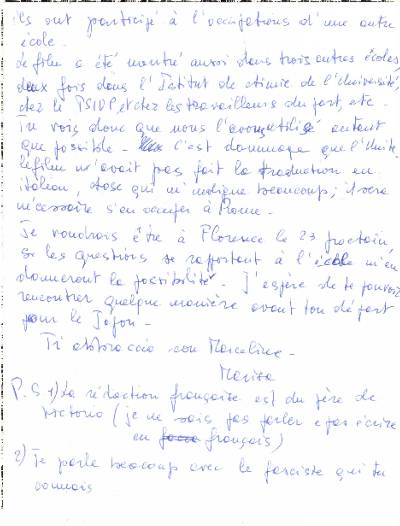 ils ont participé à l'occupations d'une autre
école.
Le film a été montré aussi dans trois autres écoles,
deux fois dans l'Istitut de chimie de l'Université,
chez le PSIUP, et chez les travailleurs du port, etc.
Tu vois donc que nous l'avons utilisé autant
que possible. C'est dommage que l'Unite
le film n'avait pas fait la traduction en
italien, chose qui m'indigne beaucoup; il sera
nécessaire s'en occuper à Rome.
Je voudrois être à Florence le 23 prochain,
si les questions se rapportant à l'école m'en
donneront la possibilité. J'espère de te pouvoir
rencontrer quelque manière avant ton départ
pour le Japon.
Ti abbraccio con Marceline.
Marisa
P.S 1) La rédaction française est du père de
Victoria (je ne sais pas parler e pas écrire
en français)
2) Je parle beaucoup avec le fasciste qui tu
connais